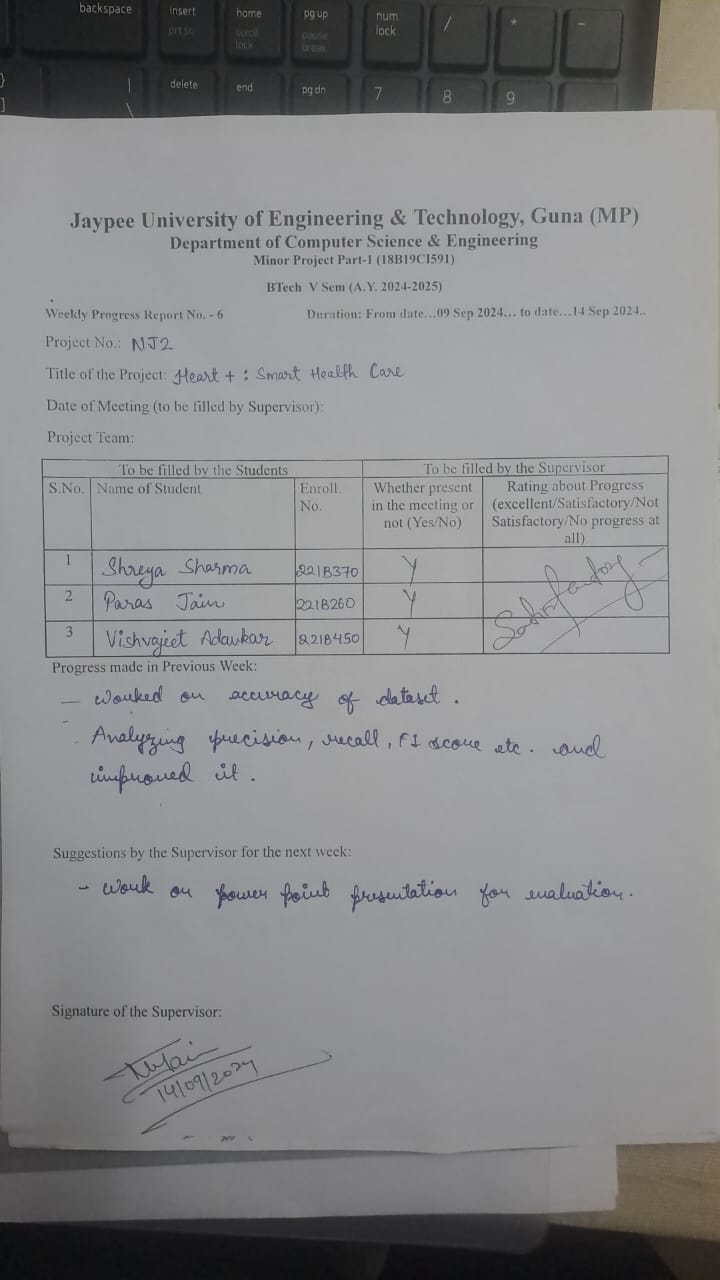 backspace insert home pg up num / * -
prt sc scroll pause lock
lock break
} | delete end pg dn 7 8 9
] \
Jaypee University of Engineering & Technology, Guna (MP)
Department of Computer Science & Engineering
Minor Project Part-1 (18B19CI591)
BTech V Sem (A.Y. 2024-2025)
Weekly Progress Report No. - 6 Duration: From date...09 Sep 2024... to date...14 Sep 2024..
Project No.: NJ2
Title of the Project: Heart + : Smart Health Care
Date of Meeting (to be filled by Supervisor):
Project Team:
To be filled by the Students To be filled by the Supervisor
S.No. Name of Student Enroll. Whether present Rating about Progress
No. in the meeting or (excellent/Satisfactory/Not
not (Yes/No) Satisfactory/No progress at
all)
1 Shreya Sharma 221B370 Y
2 Paras Jain 221B260 Y Satisfactory
3 Vishvajeet Adavkar 221B450 Y
Progress made in Previous Week:
- Worked on accuracy of dataset.
- Analyzing precision, recall, F1 score etc. and
improved it.
Suggestions by the Supervisor for the next week:
- Work on power point presentation for evaluation.
Signature of the Supervisor:
14/09/2024